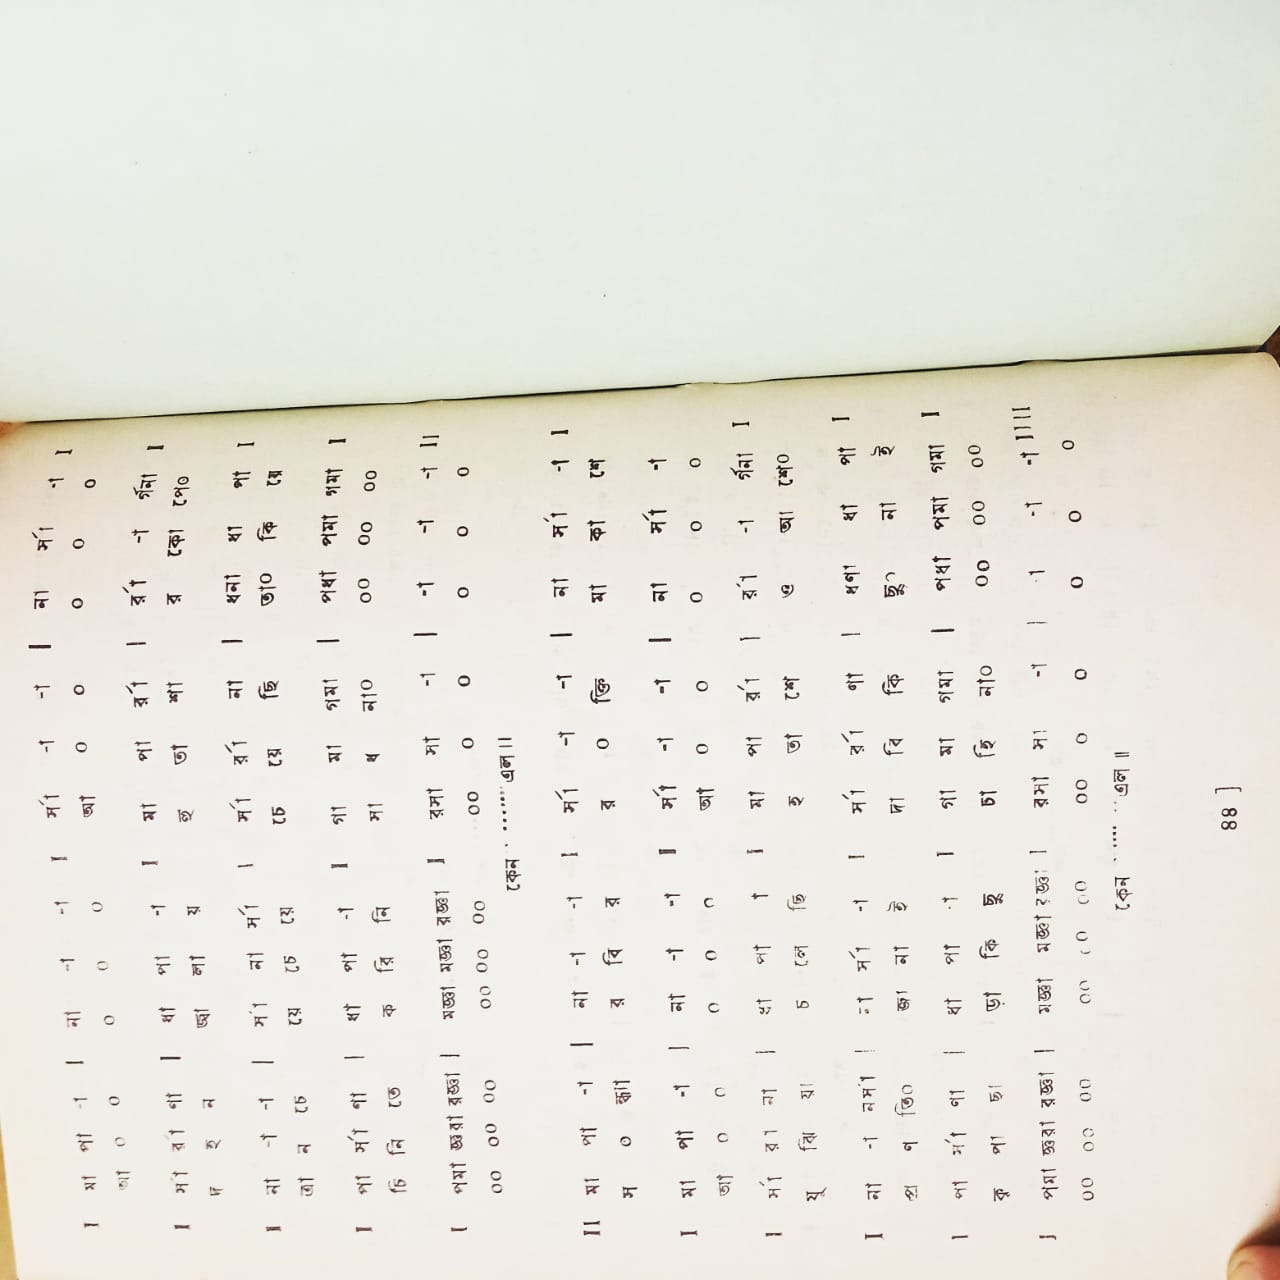 I মা পা -া | না -া -া I র্সা -া -া | না র্সা -া I
আ ০ ০ ০ ০ ০ আ ০ ০ ০ ০ ০
I র্সা র্রা ণা | ধা পা -া I মা পা র্রা | র্রা -া র্গনা I
দ হ ন জ্বা লা য় হু তা শা র কো পে০
I না -া -া | র্সা না র্সা I র্সা র্রা না | ধনা ধা পা I
তা ন চে য়ে চে য়ে চে য়ে ছি তা০ কি য়ে
I পা র্সা ণা | ধা পা -া I গা মা গমা | পধা পমা গমা I
চি নি তে ক রি নি সা ধ না০ ০০ ০০ ০০
I পমা জ্ঞরা রজ্ঞা | মজ্ঞা মজ্ঞা রজ্ঞা I রসা সা -া | -া -া -া II
০০ ০০ ০০ ০০ ০০ ০০ ০০ ০ ০ ০ ০ ০
কেন ...... এল॥
II মা পা -া | না -া -া I র্সা -া -া | না র্সা -া I
স ০ ন্ধ্যা র বি র র ০ ক্তি মা কা শে
I মা পা -া | না -া -া I র্সা -া -া | না র্সা -া
আ ০ ০ ০ ০ ০ আ ০ ০ ০ ০ ০
I র্সা রা না | ধা পা া I মা পা র্রা | র্রা -া র্গনা I
মু ঝি য়া চ লে ছি হ তা শে ও আ শে০
I না -া নর্সা | না র্সা -া I র্সা র্রা ণা | ধণা ধা পা I
প্র ণ তি০ জা না ই দা বি কি ছু০ না ই
I পা র্সা ণা | ধা পা -া I গা মা গমা | পধা পমা গমা I
কৃ পা ছা ড়া কি ছু চা হি না০ ০০ ০০ ০০
I পমা জ্ঞরা রজ্ঞা | মজ্ঞা মজ্ঞা রজ্ঞা I রসা সা -া | -া -া -া IIII
০০ ০০ ০০ ০০ ০০ ০০ ০০ ০ ০ ০ ০ ০
কেন ...... এল॥
88 ]